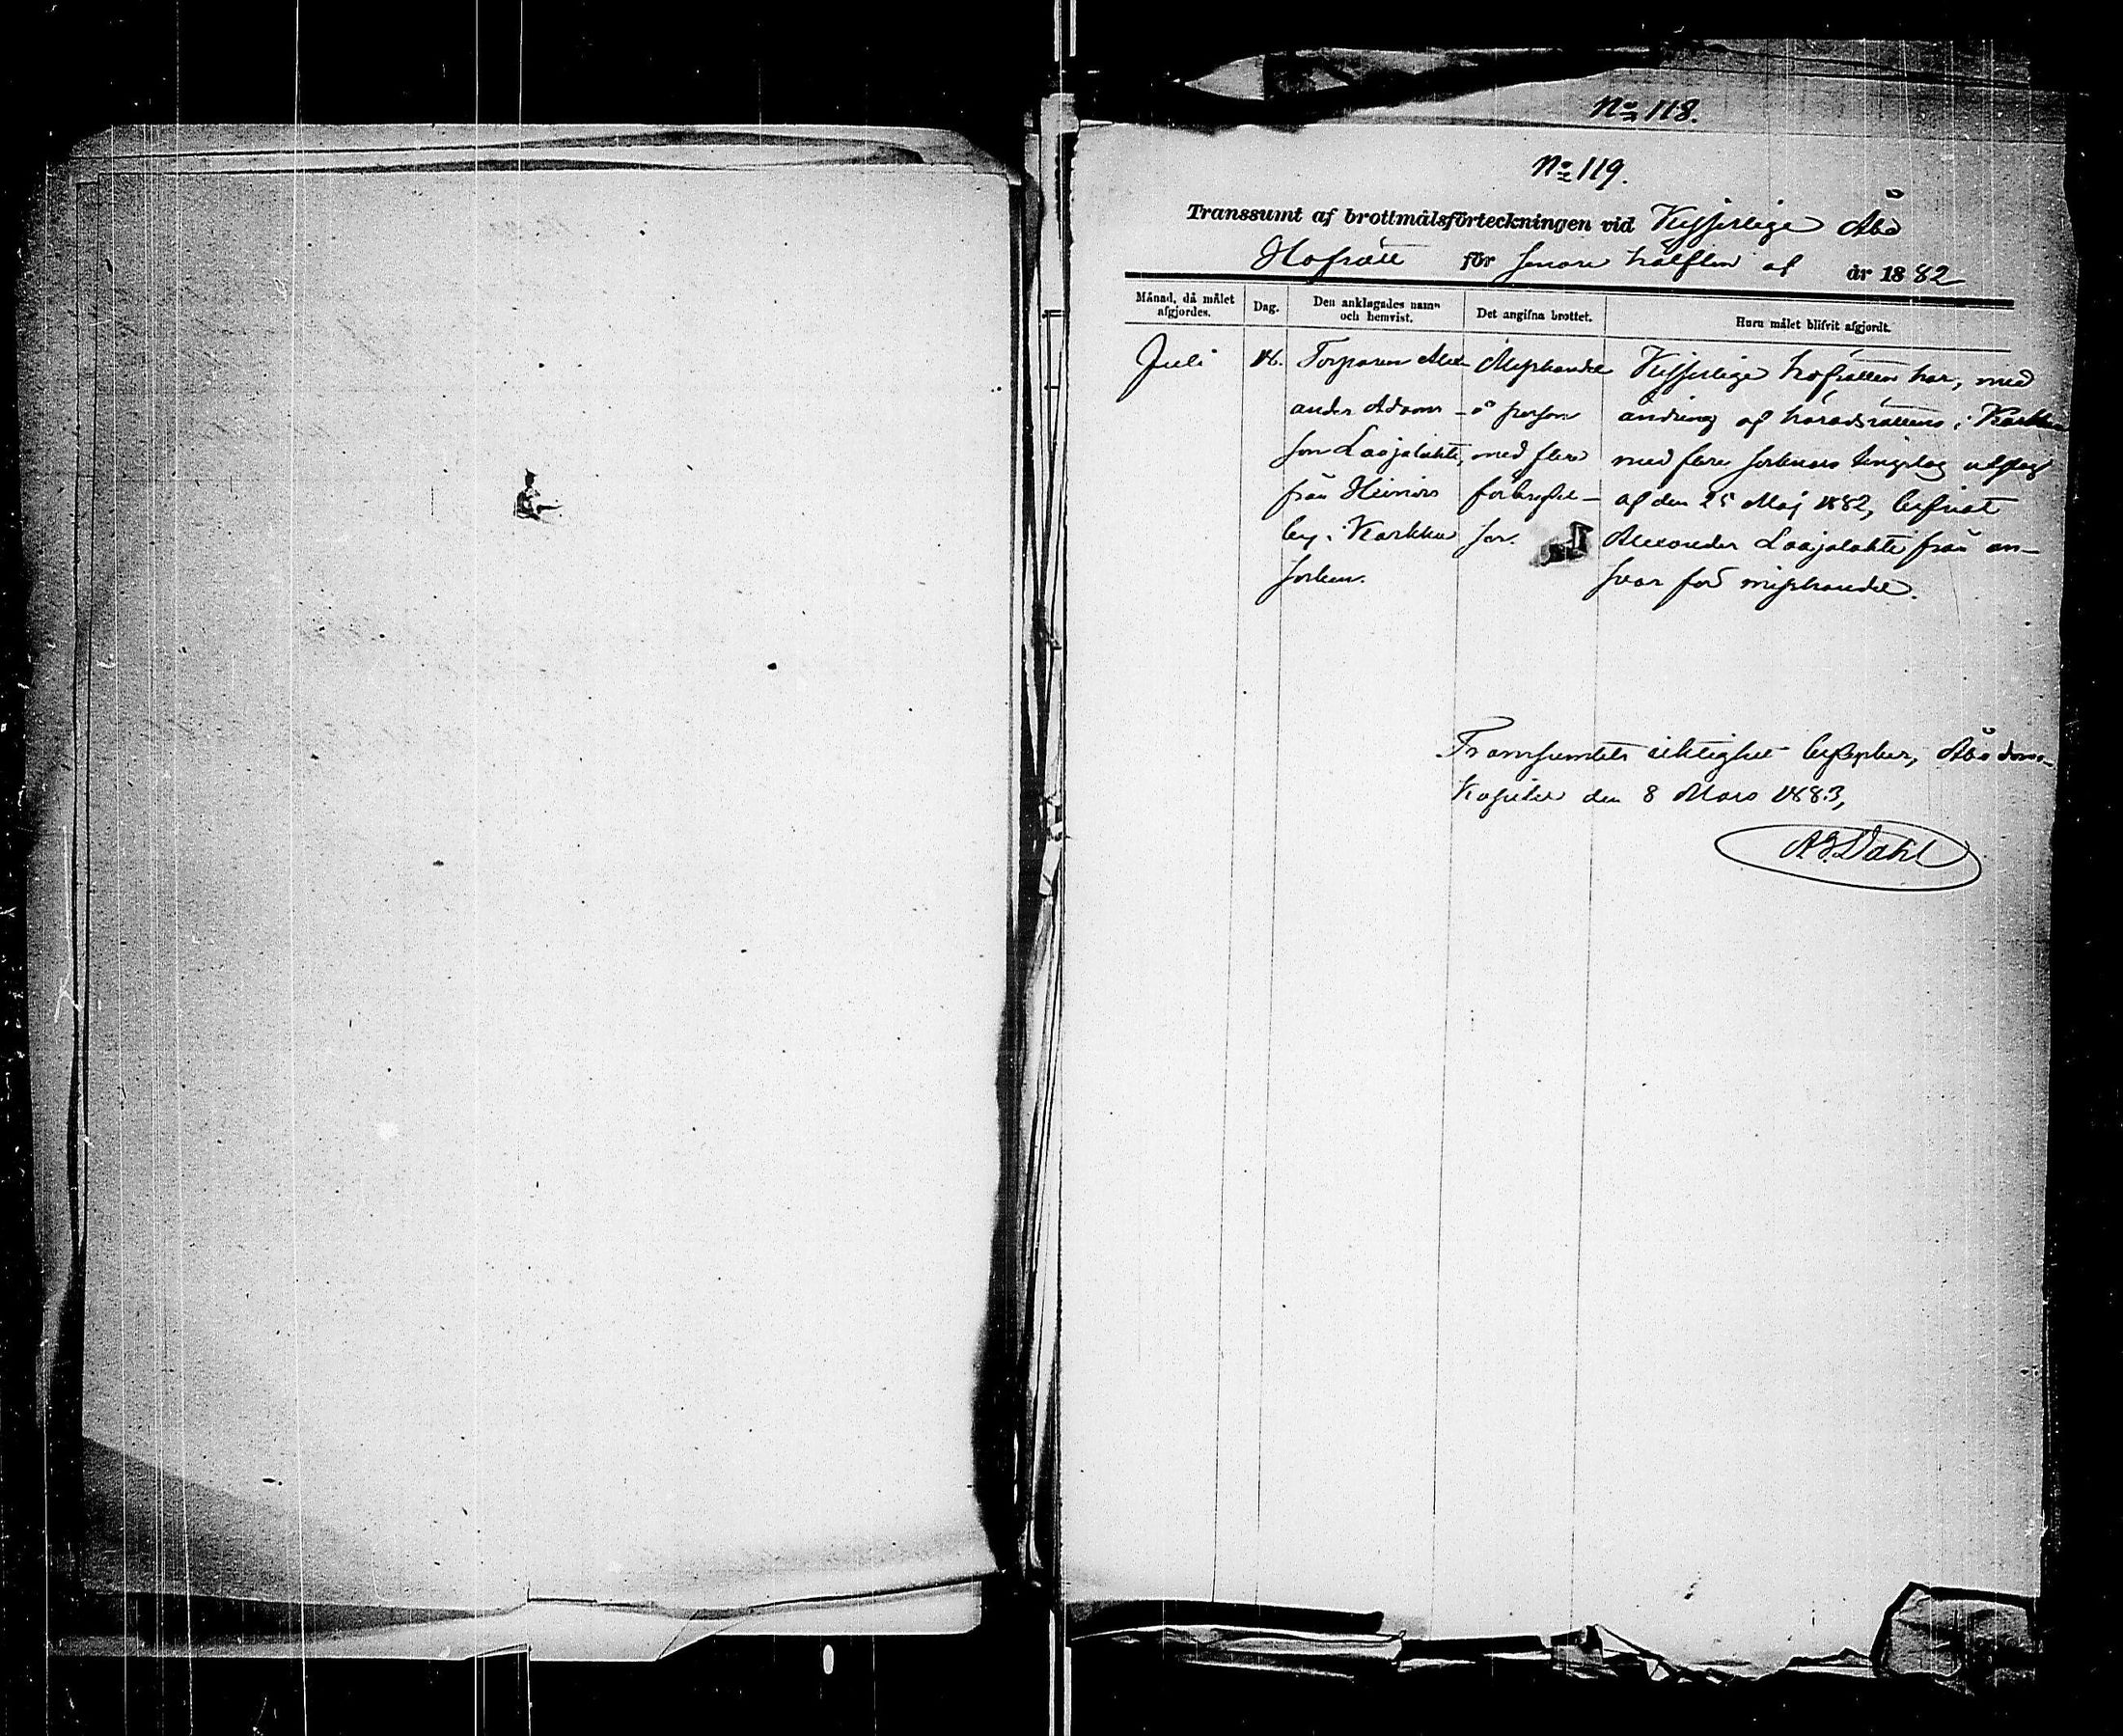 No 118.
No 119.
Transsumt af brottmålsförteckningen vid Kejserlige Åbo
Hofrätt för senare hälften af år 1882
Månad, då målet afgjordes.
Dag.
Den anklagades namn och hemvist.
Det angifna brottet.
Huru målet blifvit afgjordt.
Juli
18.
Torparen Alex-
ander Adams-
son Laojalahti,
från Heinoo
by i Karkku
socken.
Misshandel
å person
med flere
förbrytel-
ser.
Kejserlige hofrätten har, med
ändring af häradsrättens i Karkku
med flere socknars tingslag utslag
af den 25 Maj 1882, befriat
Alexander Laojalahti från an-
svar för misshandel.
Transsumtets riktighet bestyrker, Åbo dom-
kapitel den 8 Mars 1883,
Dahl